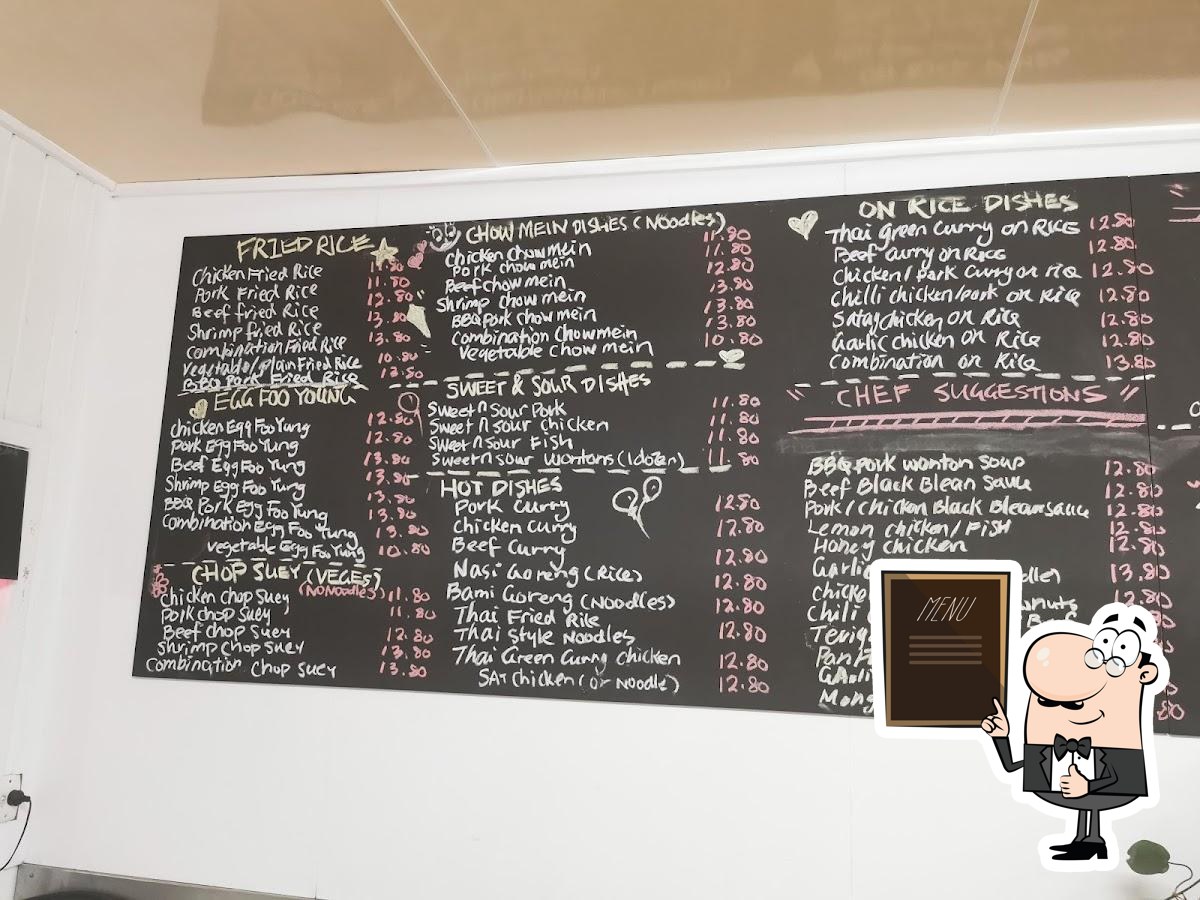 FRIED RICE
Chicken Fried Rice 11.80
Pork Fried Rice 11.80
Beef fried Rice 12.80
Shrimp fried Rice 13.80
Combination Fried Rice 13.80
Vegetable/plain Fried Rice 10.80
BBQ Pork Fried Rice 13.50
EGG FOO YOUNG
Chicken Egg Foo Yung 12.80
Pork Egg Foo Yung 12.80
Beef Egg Foo Yung 13.80
Shrimp Egg Foo Yung 13.80
BBQ Pork Egg Foo Yung 13.80
Combination Egg Foo Yung 13.80
Vegetable Egg Foo Yung 10.80
CHOP SUEY (VEGES)
(NO Noodles)
Chicken chop Suey 11.80
Pork chop Suey 11.80
Beef chop Suey 12.80
Shrimp chop Suey 13.80
Combination chop suey 13.80
CHOW MEIN DISHES (Noodles)
Chicken chow mein 11.80
Pork chow mein 11.80
Beef chow mein 12.80
Shrimp chow mein 13.80
BBQ Pork chow mein 13.80
Combination Chow mein 13.80
Vegetable chow mein 10.80
SWEET & SOUR DISHES
Sweet n Sour Pork 11.80
Sweet n sour chicken 11.80
Sweet n sour Fish 11.80
Sweet n sour Wontons (1 dozen) 11.80
HOT DISHES
Pork Curry 12.80
Chicken Curry 12.80
Beef Curry 12.80
Nasi Goreng (Rice) 12.80
Bami Goreng (Noodles) 12.80
Thai Fried Rice 12.80
Thai Style Noodles 12.80
Thai Green Curry Chicken 12.80
SAT Chicken (or Noodle) 12.80
ON RICE DISHES
Thai Green Curry on RICE 12.80
Beef Curry on Rice 12.80
Chicken/Pork Curry on rice 12.80
Chilli chicken/pork on Rice 12.80
Satay chicken on Rice 12.80
Garlic chicken on Rice 12.80
Combination on Rice 13.80
"CHEF SUGGESTIONS"
BBQ Pork wonton Soup 12.80
Beef Black Blean Sauce 12.80
Pork/Chicken Black Blean sauce 12.80
Lemon chicken/FISH 12.80
Honey chicken 12.80
Garlic 13.80
Chili
MENU